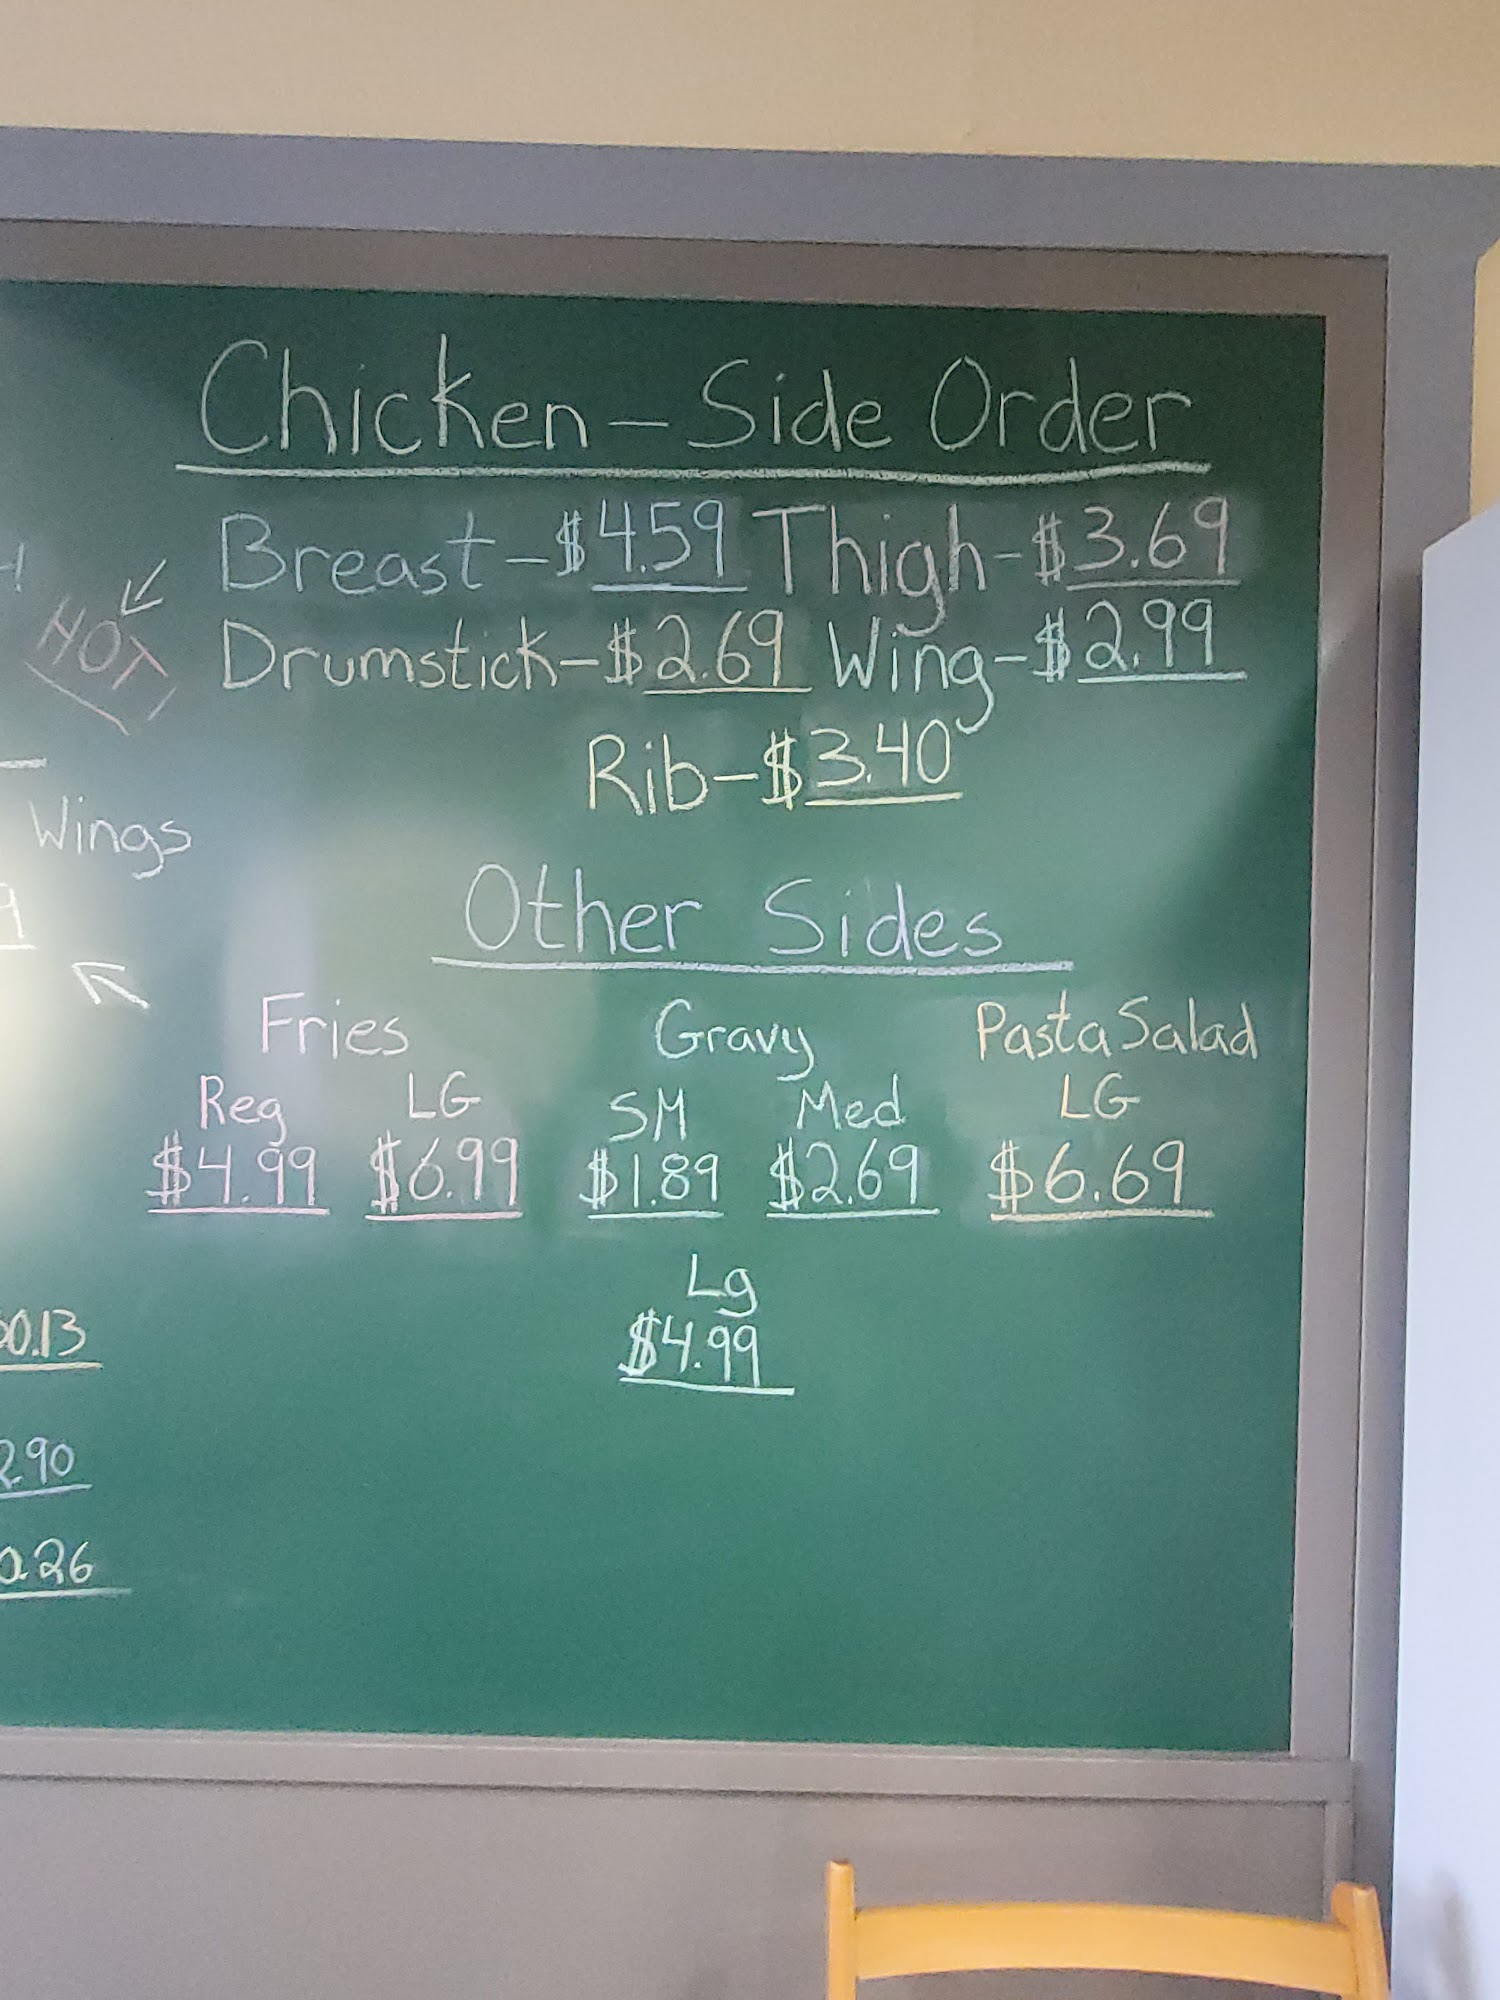 Chicken - Side Order
Breast - $4.59 Thigh - $3.69
HOT
Drumstick - $2.69 Wing - $2.99
Rib - $3.40
Wings
9
Other Sides
Fries Gravy Pasta Salad
Reg LG SM Med LG
$4.99 $6.99 $1.89 $2.69 $6.69
Lg
$4.99
0.13
2.90
0.26